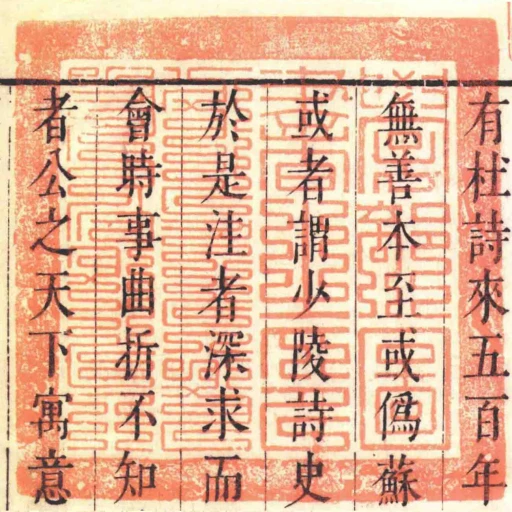 有杜詩來五百年
無善本至或僞蘇
或者謂少陵詩史
於是注者深求而
會時事曲折不知
者公之天下寓意